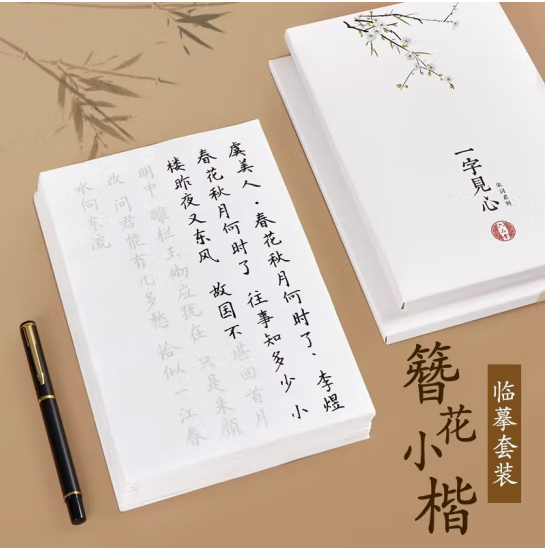 虞美人·春花秋月何时了·李煜
春花秋月何时了 往事知多少 小
楼昨夜又东风 故国不堪回首月
明中 雕栏玉砌应犹在 只是朱颜
改 问君能有几多愁 恰似一江春
水向东流
一字見心
宋词系列
簪花小楷
临摹套装